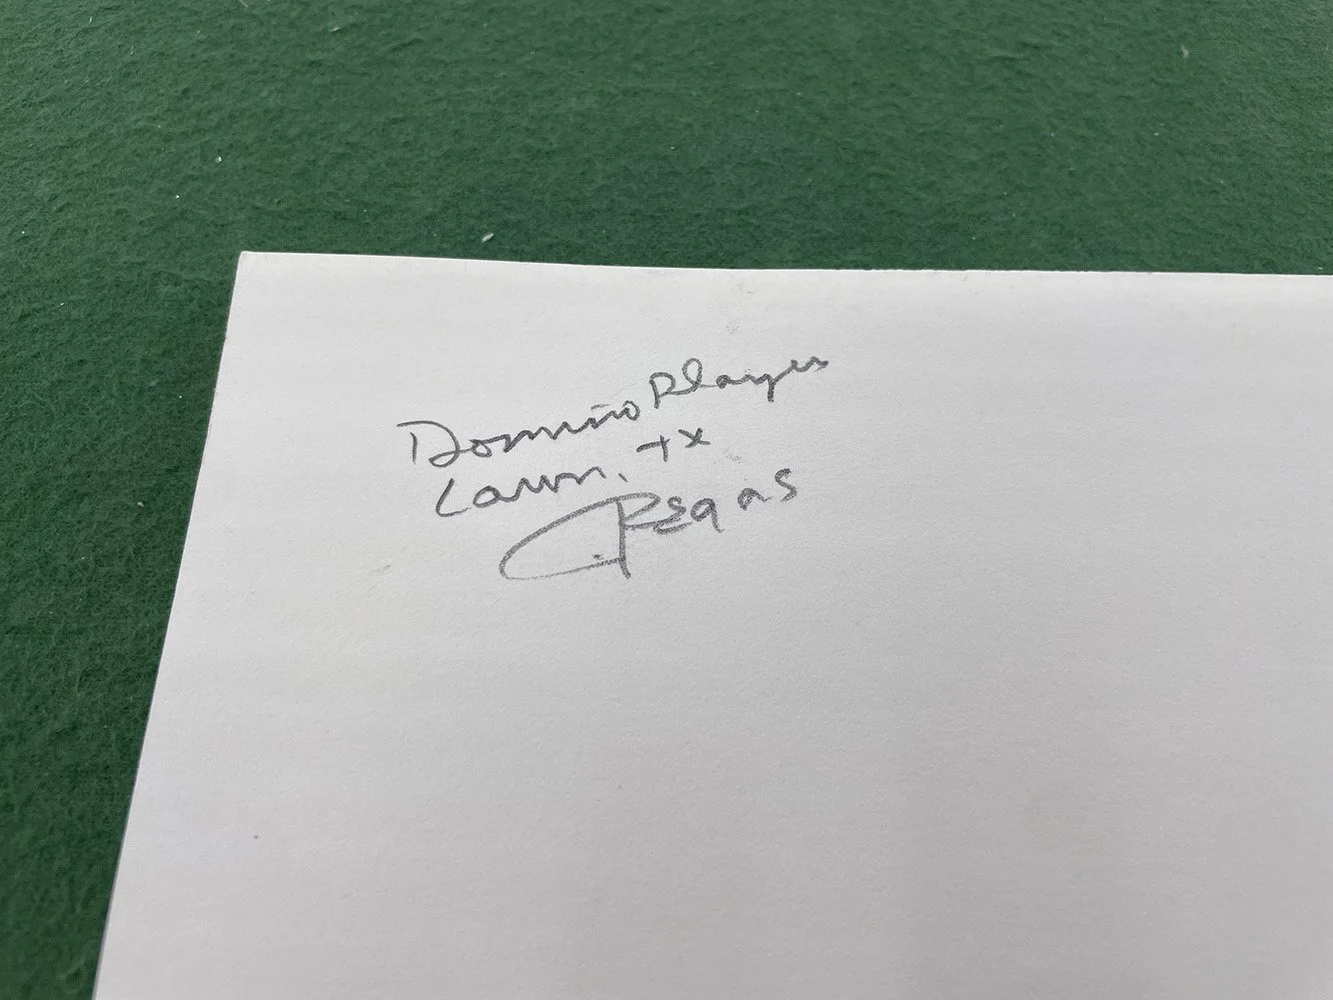 Domino Player
Lawn, TX
C. Regas